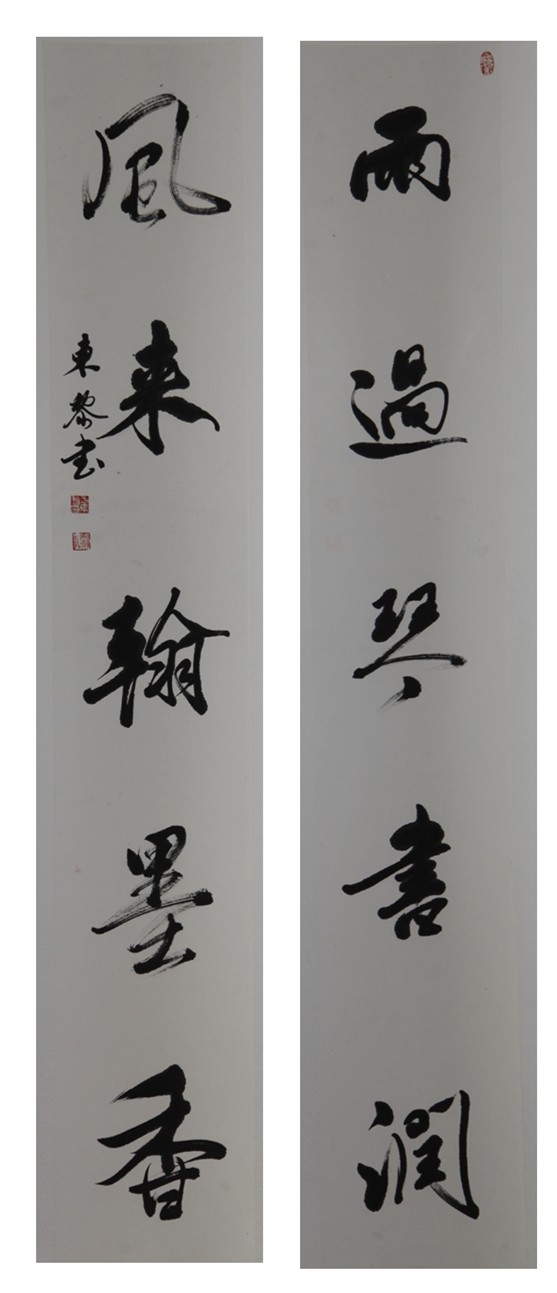 雨過琴書潤
風来翰墨香
東黎书